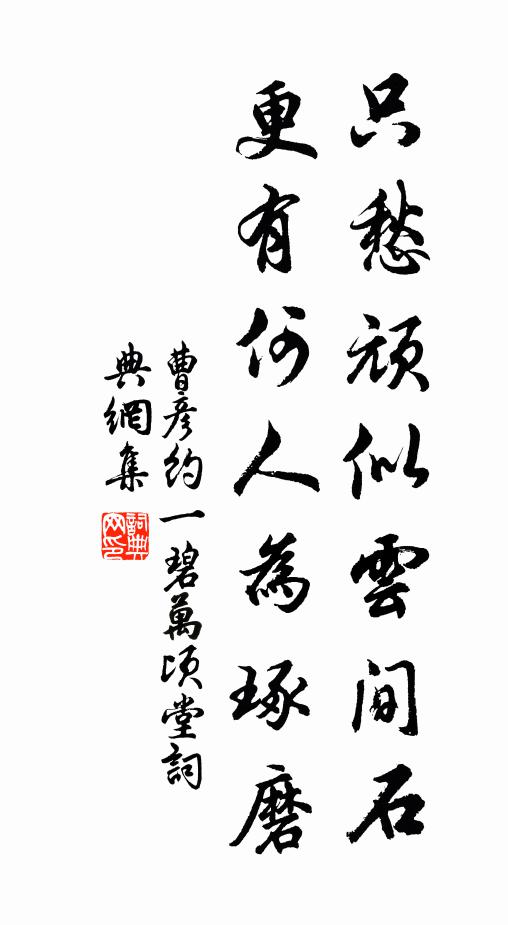 只愁頑似雲間石
更有何人為琢磨
曹彥約一碧萬頃堂詞
典網集
詞典网印